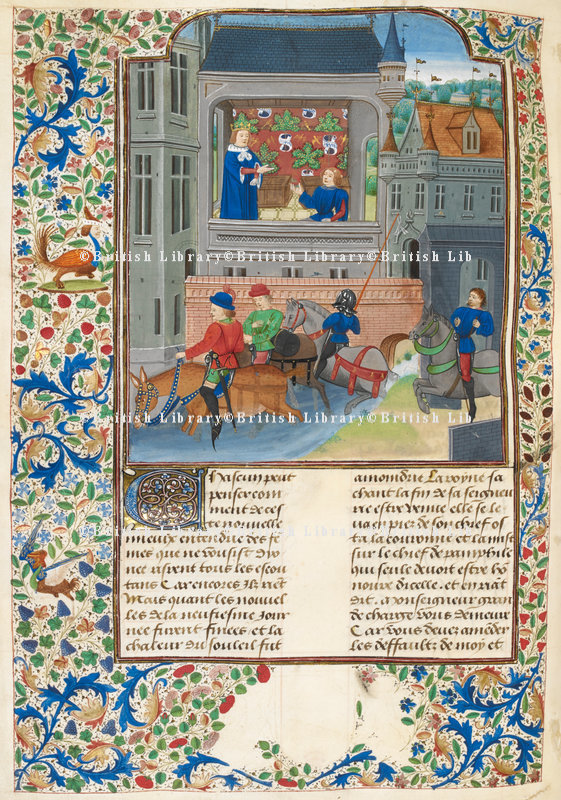 ©British Library©British Library©British Lib
©British Library©British Library©British Lib
Chascun peut
penser com
ment de ces
te nouvelle
mieux entendue des fe
mes que ne vousist dyo
nee risrent tous les escou
tans Car encores ilz riēt
Mais quant les nouvel
les de la neufiesme jour
nee furent finees et la
chaleur du souleil fut
amoindrie La royne sa
chant la fin de sa seigneu
rie estre venue elle se le
va en piez de son chief os
ta la couronne et la mist
sur le chief de pamphile
qui seule devoit estre ho
nouree dicelle. et en riāt
dit. Monseigneur gran
de charge vous demeure
Car vous devez amēder
les deffaultz de moy et